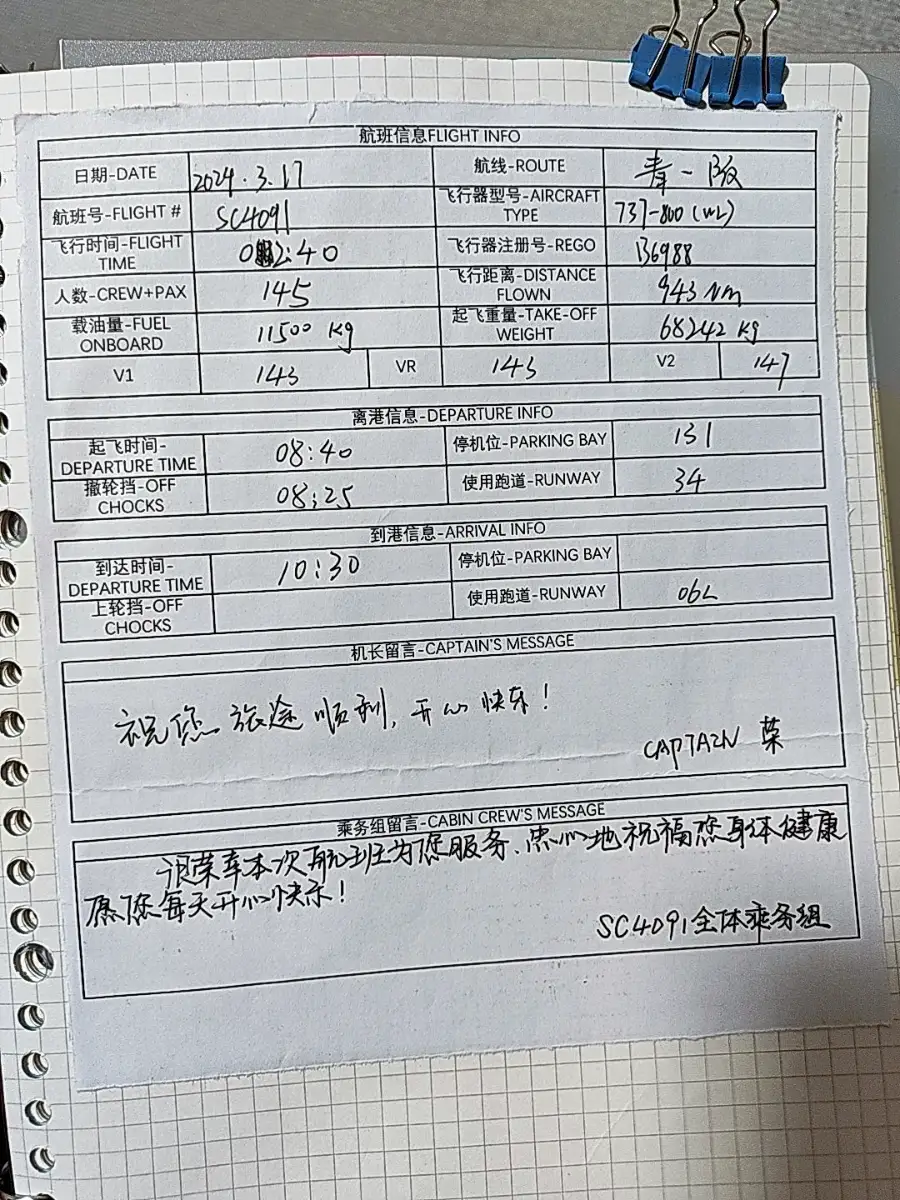 航班信息FLIGHT INFO
日期-DATE 2024.3.17 航线-ROUTE 青-厦
航班号-FLIGHT # SC4091 飞行器型号-AIRCRAFT TYPE 737-800(WL)
飞行时间-FLIGHT TIME 02:40 飞行器注册号-REGO B6988
人数-CREW+PAX 145 飞行距离-DISTANCE FLOWN 943 Nm
载油量-FUEL ONBOARD 11500 kg 起飞重量-TAKE-OFF WEIGHT 68242 kg
V1 143 VR 143 V2 147
离港信息-DEPARTURE INFO
起飞时间-DEPARTURE TIME 08:40 停机位-PARKING BAY 131
撤轮挡-OFF CHOCKS 08:25 使用跑道-RUNWAY 34
到港信息-ARRIVAL INFO
到达时间-DEPARTURE TIME 10:30 停机位-PARKING BAY
上轮挡-OFF CHOCKS 使用跑道-RUNWAY 06L
机长留言-CAPTAIN'S MESSAGE
祝您旅途顺利,开心快乐!
CAPTAIN 荣
乘务组留言-CABIN CREW'S MESSAGE
很荣幸本次航班为您服务、忠心地祝福您身体健康
愿您每天开心快乐!
SC4091全体乘务组